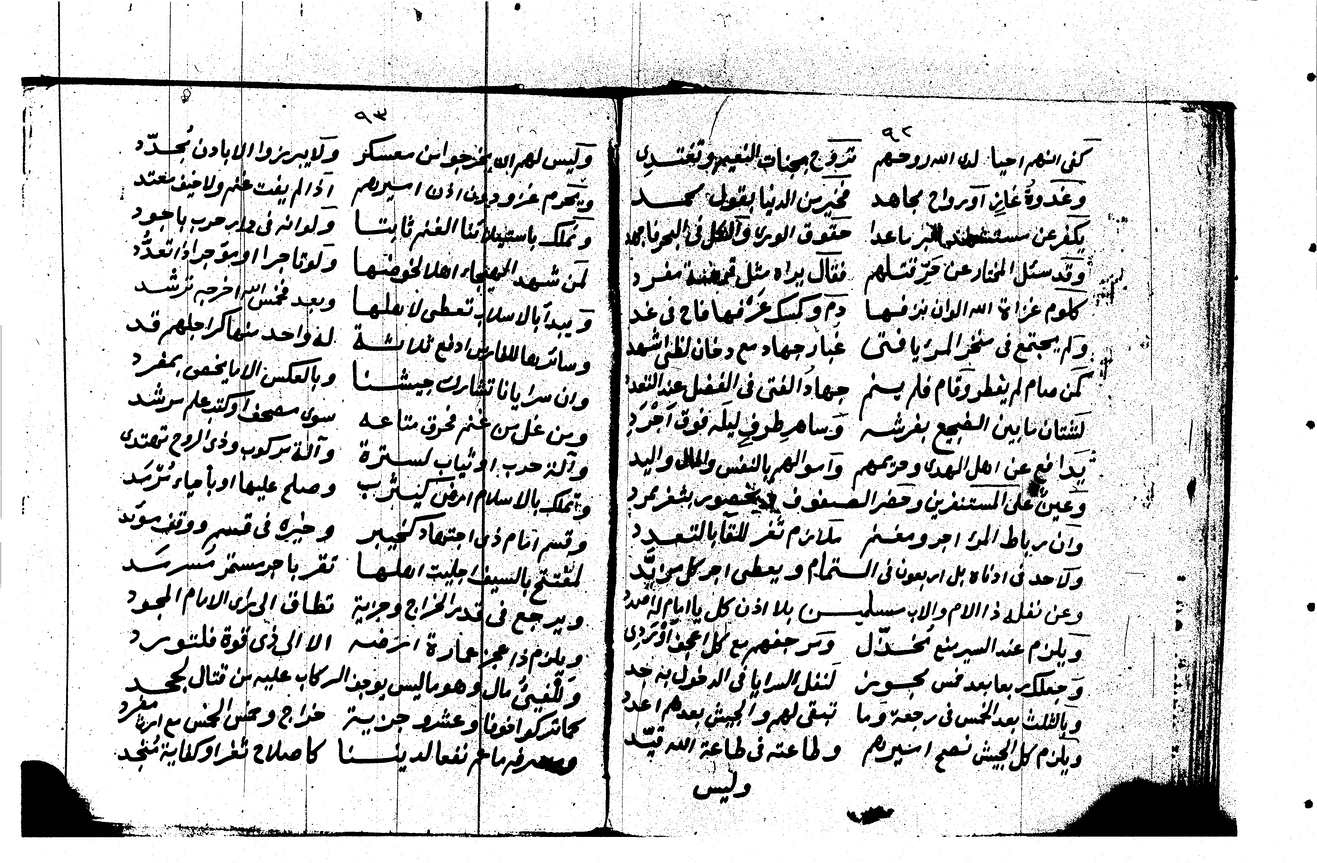 ٩٢
كفى انهم احيا لدى الله روحهم تروح بجنات النعيم وتغتدي
وغدوة غاز او رواح مجاهد فخير من الدنيا بقول محمد
يكفر عن مستشهد البر ما عدا حقوق الورى والكل في البحر فاجهد
وقد سئل المختار عن حر قتلهم فقال يراه مثل قرصة مفرد
كلوم غزاة الله الوان نزفها دم وكمسك عرفها فاح في غد
ولم يجتمع في منخر المرء يا فتى غبار جهاد مع دخان لظى اشهد
كمن صام لم يفطر وقام فلم ينم جهاد الفتى في الفضل عند التعدد
لشتان ما بين الضجيع بفرشه وساهر طرف ليلة فوق اجرد
يدافع عن اهل الهدى وحريمهم واموالهم بالنفس والمال واليد
وعين على المستنفرين وحضر الصفوف ومحصور بثغر
وان رباط المرء اجر ومغنم ملازم ثغر للقا بالتعدد
ولا حد في ادناه بل اربعون في التمام ويعطى اجر كل
وعن نفله ذا الام والاب مسلمين بلا اذن كل يا امام له
ويلزم عند السير منع مخذل ومرجفهم مع كل اعجف
وجعلك ربعا بعد خمس لجويز لنفل السرايا في الدخول به جد
وبالثلث بعد الخمس في رجعة وما تبقى لهم والجيش بعدهم اعدد
ويلزم كل الجيش نصح اميرهم وطاعته في طاعة الله قيد
وليس
٩٣
وليس لهم ان يخرجوا من معسكر ولا يبرزوا الا باذن مجدد
ويحرم غزو دون اذن اميرهم اذا لم يفت غنم ولا خيف معتد
ونملك باستيلائنا الغنم ثابتا ولو انه في دار حرب باجود
لمن شهد الهيجاء اهلا لخوضها ولو تاجرا او مؤجرا ذا تعدد
ويبدأ بالاسلاب تعطى لاهلها وبعد فخمس الله اخرجه ترشد
وسائرها للفارس ادفع ثلاثة له واحد منها كراجلهم قد
وان سرايانا تشارك جيشنا وبالعكس الا ما يخص بمفرد
ومن غل من غنم فحرق متاعه سوى مصحف او كتب علم مرشد
وآلة حرب او ثياب لسترة وآلة مركوب وذي الروح تهتدي
وتملك بالاسلام ارض كيثرب وصلح عليها او باحياء
وقسم امام ذي اجتهاد كخيبر وخيره في قسم ووقف مؤبد
لمفتتح بالسيف اجليت اهلها تقر باجر مستمر مسرمد
ويرجع في قدر الخراج وجزية تطاق الى رأى الامام المجود
ويلزم ذا عجز عمارة ارضه الا الى ذي قوة فلتورد
وللفيئ مال وهو ما ليس يوجف الركاب عليه من قتال لجحد
كما تركوا خوفا وعشر وجزية خراج وخمس الخمس مع ارث مفرد
ومصرفه ما عم نفعا لديننا كاصلاح ثغر او كفاية منجد